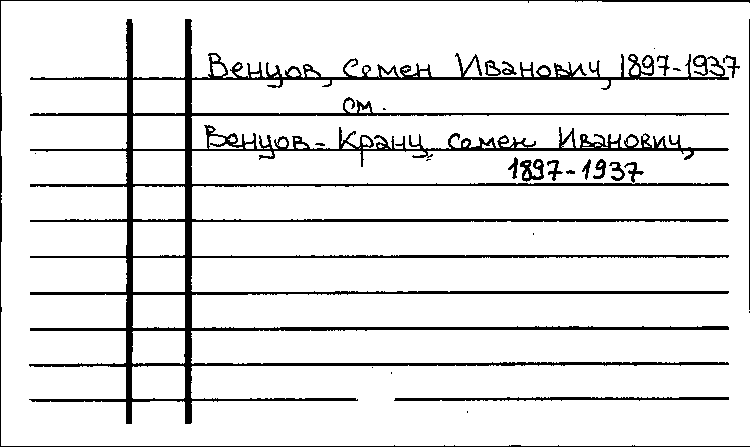 Венцов, Семен Иванович, 1897-1937
см.
Венцов-Кранц, Семен Иванович,
1897-1937